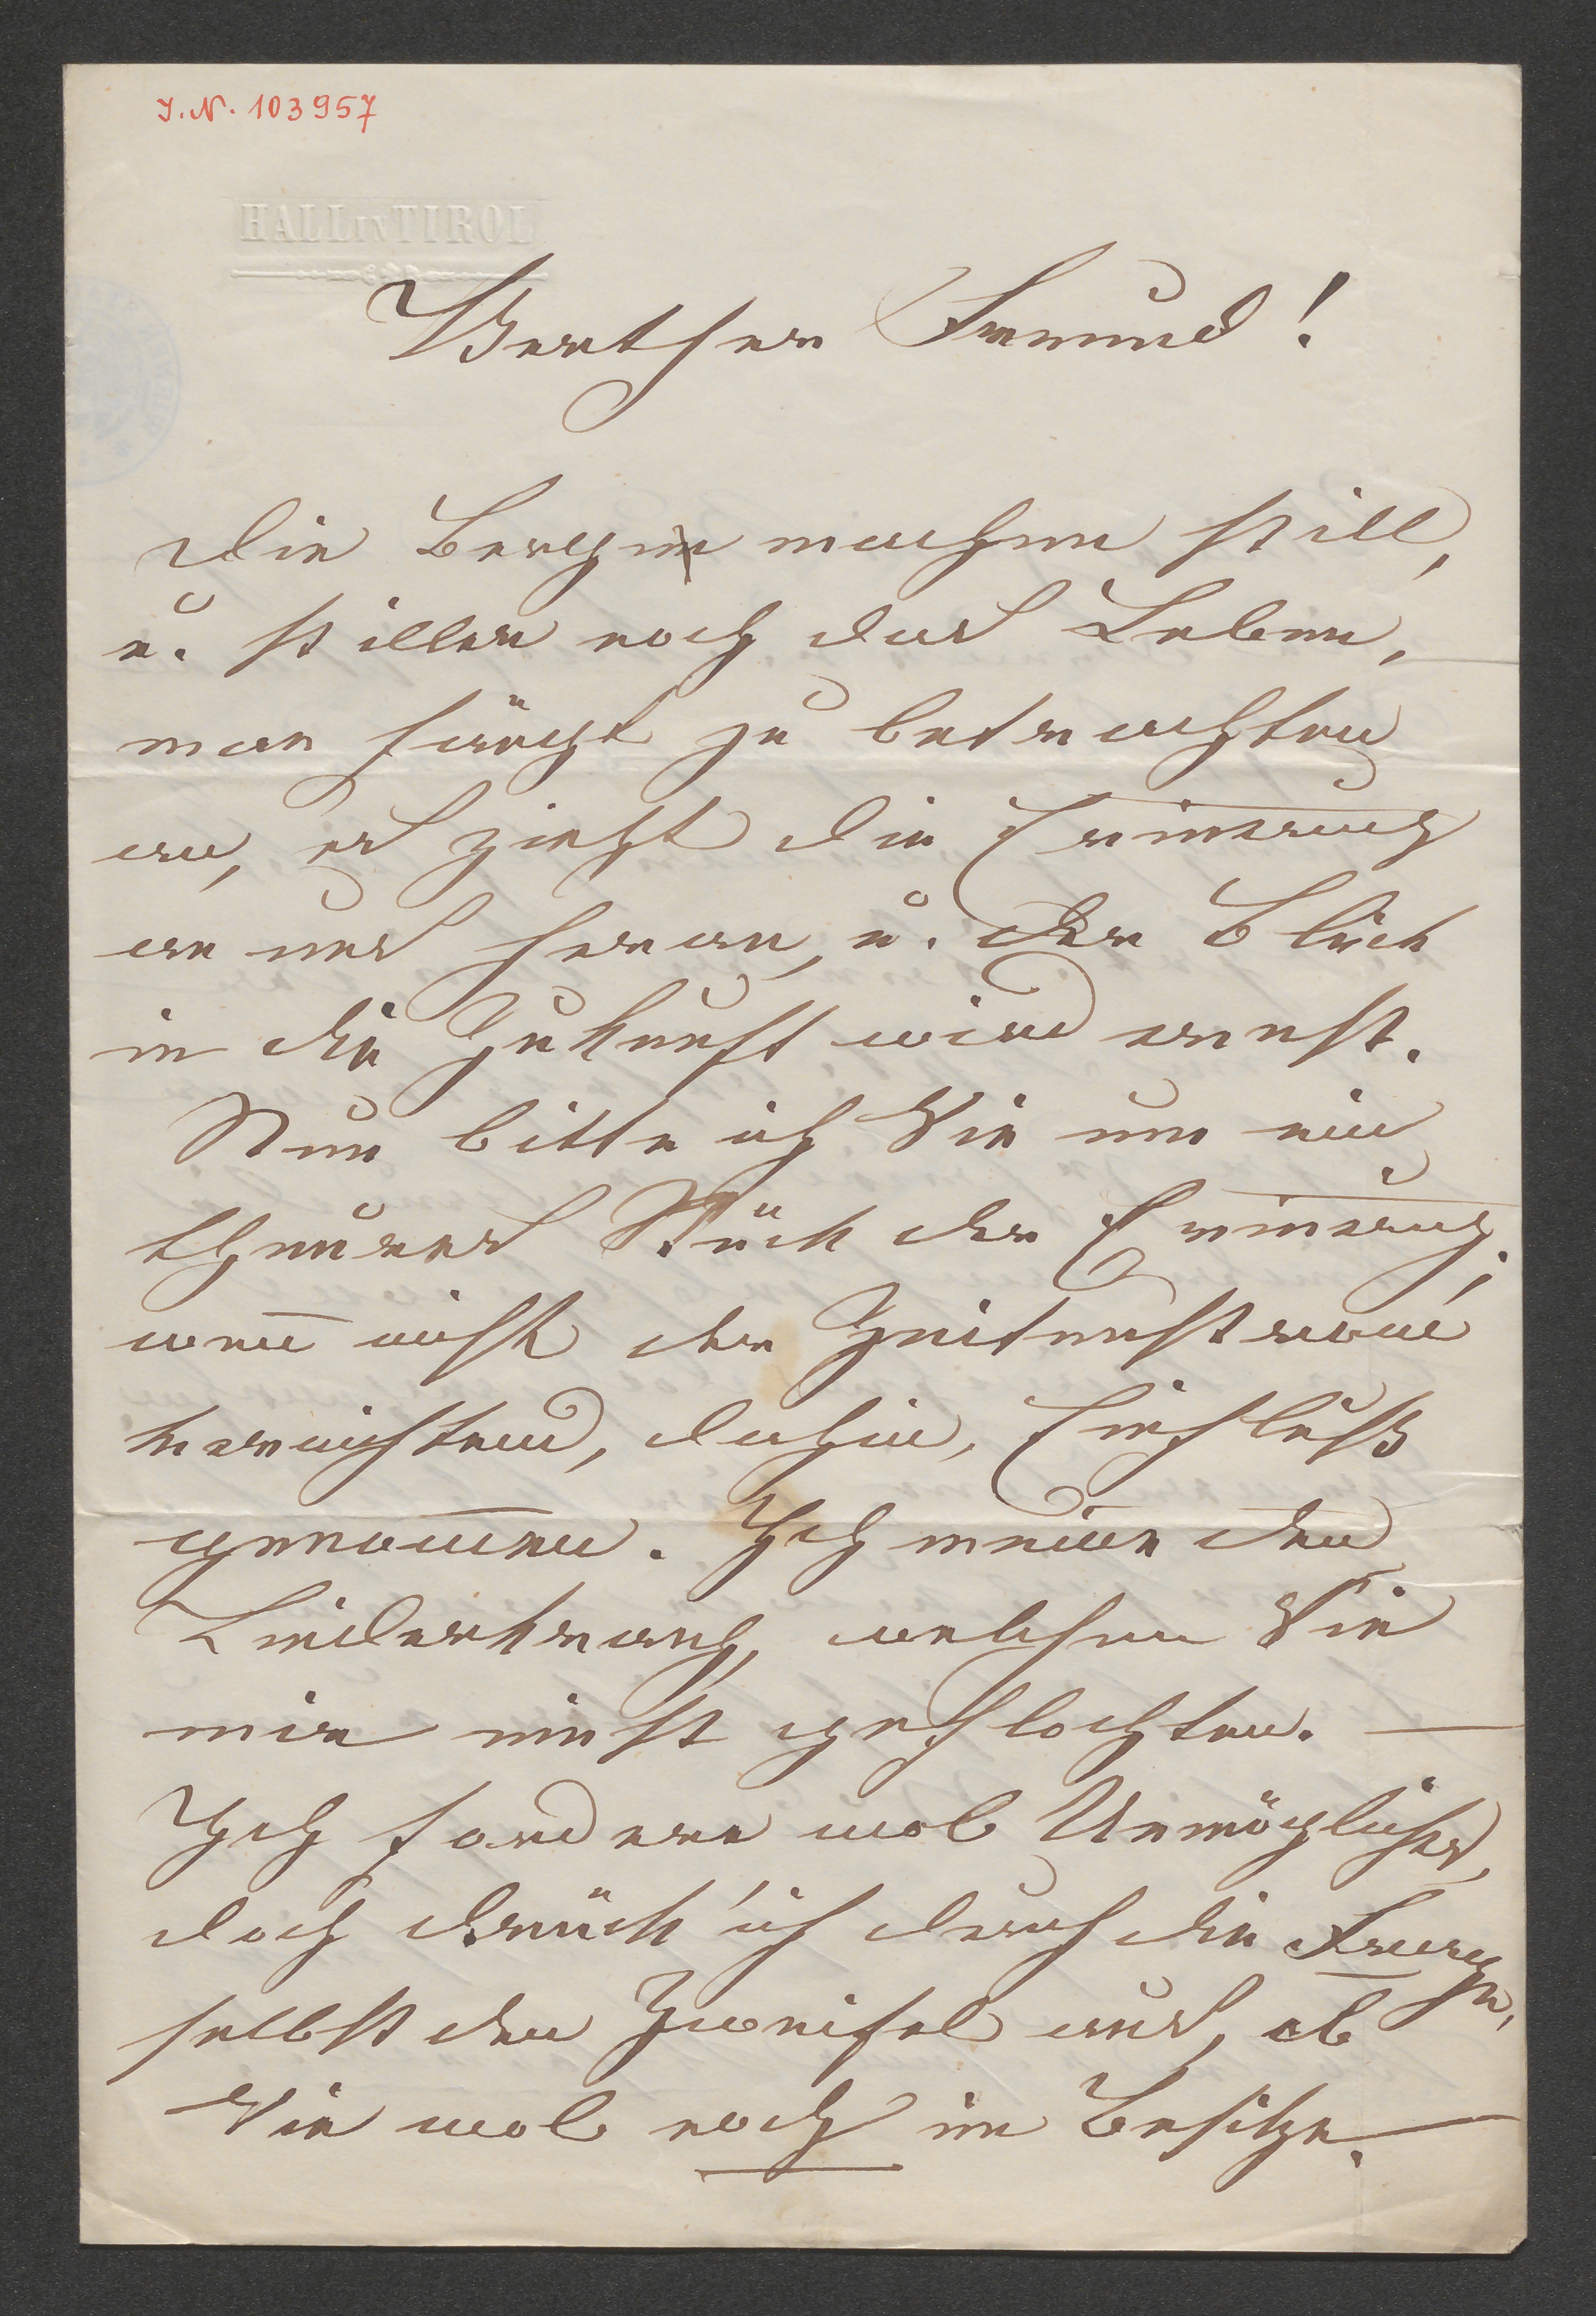 I.N. 103957
HALL IN TIROL
Werther Freund!
Die Berge machen still,
u. stiller noch das Leben,
man fängt zu betrachten
an, es zieht die Erinerung
an uns heran, u. der Blick
in die Zukunft wird ernst.
Nun bitte ich Sie um ein
theures Stück der Erinerung,
wen̄ nicht der Zeitenstrom
vernichtend, dahin, Einfluß
genom̄en. Ich meine den
Liederkranz, welchen Sie
mir einst geflochten. —
Ich fordere wol Unmögliches,
doch drück' ich durch die Frage,
selbst den Zweifel aus, ob
Sie wol noch im Besitze. —